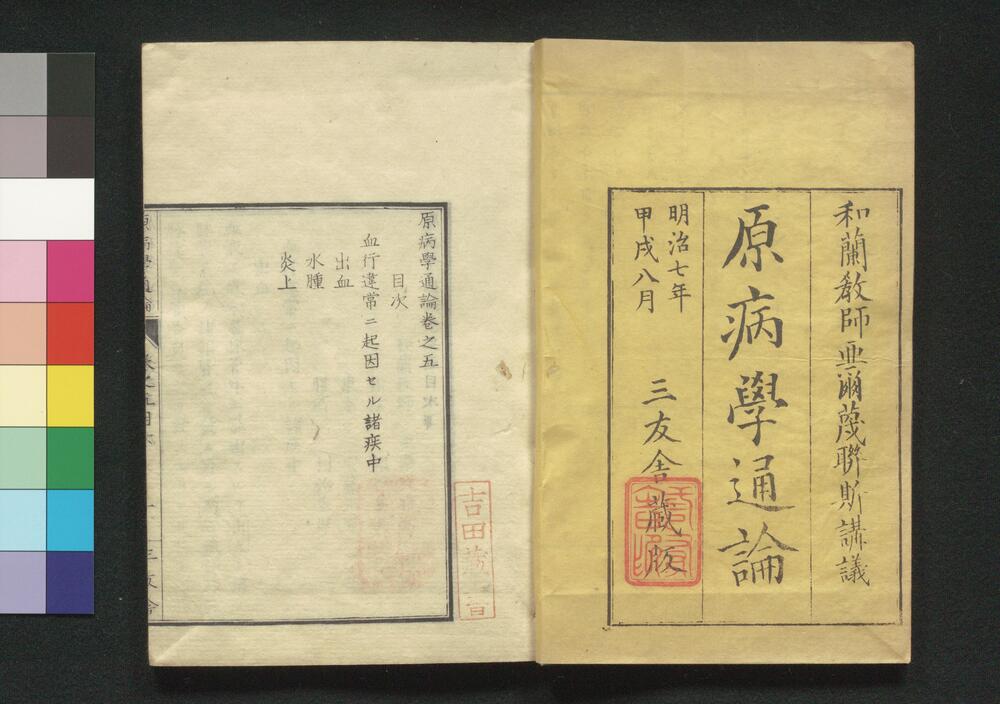 和蘭教師亜爾蔑聯斯講議
原病學通論
明治七年
甲戌八月
三友舎蔵版
原病學通論巻之五目次
目次
血行違常ニ起因セル諸疾中
出血
水腫
炎上
原病學通論
吉田